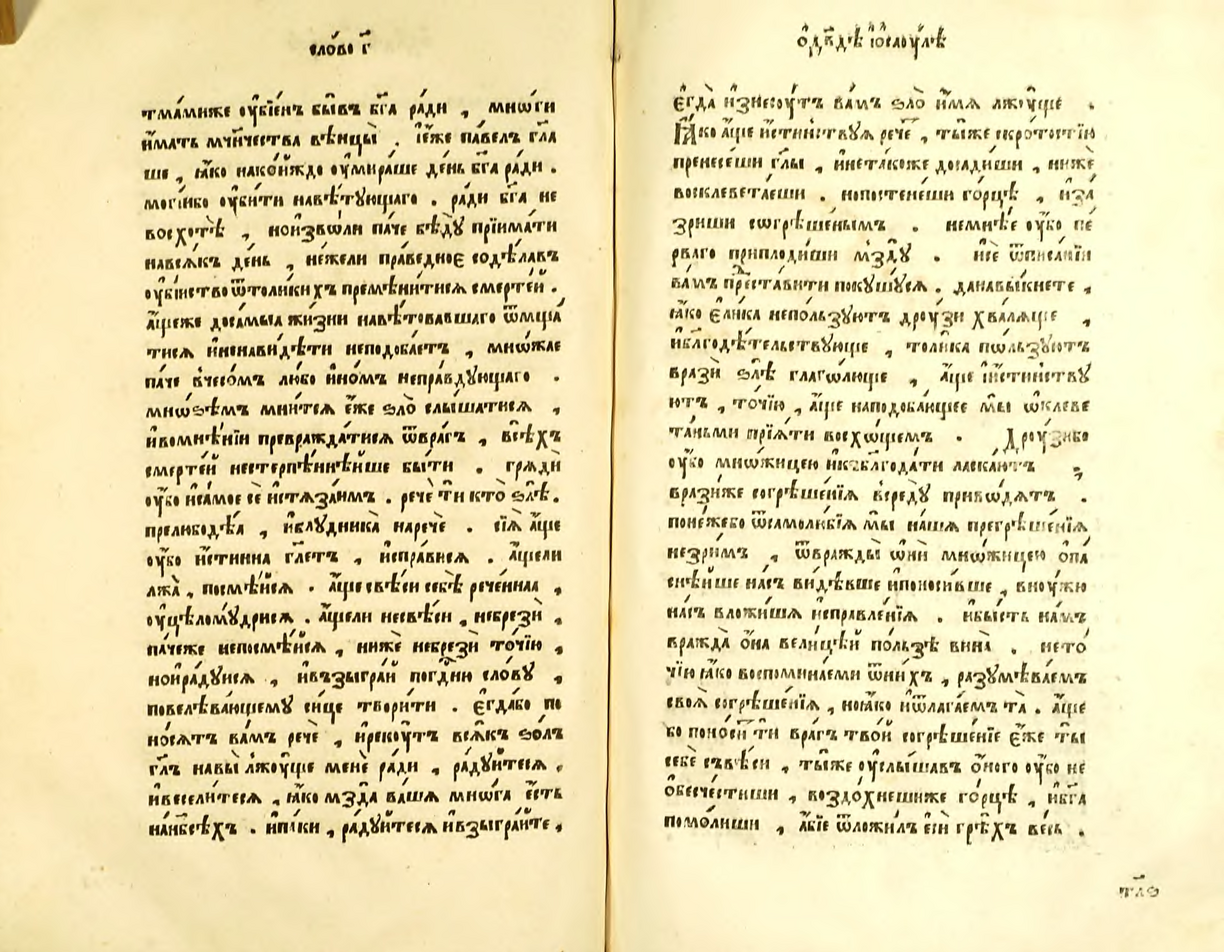 сло́во г҃
тма́миже ᲂу҆бїе́нъ бы́въ бг҃а ра́ди , мнѡ́ги
и҆́мать мч҃нчества вѣнцы̀ . ꙗ҆́же па́велъ гл҃а
ше , ꙗ҆́ко нако́йждо ᲂу҆мира́ше де́нь бг҃а ра́ди .
могі́ибо ᲂу҆би́ти навѣ́тꙋющаго . ра́ди бг҃а не
восхотѣ̀ , ноизво́ли па́че бѣ́дꙋ прїима́ти
навсѧ́къ де́нь , не́жели пра́ведное содѣ́лавъ
ᲂу҆бі́иство ѿтоли́ки хъ премѣни́тисѧ смерте́й .
а҆́щеже доса́мыѧ жи́зни навѣ́товавшаго ѿмща́
тисѧ и҆ненави́дѣти неподоба́етъ , мно́жае
па́че вче́сомъ лю́бо и҆но́мъ непра́вдꙋющаго .
мнѡ́ѕѣмъ мни́тсѧ є҆́же ѕло̀ слы́шатисѧ ,
и҆вомнѣ́нїи превражда́тисѧ ѿвра́гъ , всѣ́хъ
смерте́й нестерпѣ́ннѣйше бы́ти . грѧдѝ
ᲂу҆́бо и҆са́мое сѐ и҆стѧза́имъ . речѐ ти кто̀ ѕлѣ̀ .
прелюбодѣ́а , и҆блꙋдника̀ наречѐ . сїѧ̀ а҆́ще
ᲂу҆́бо и҆́стинна гл҃етъ , и҆спра́висѧ . а҆́щели
лжа̀ , посмѣ́йсѧ . а҆́ще свѣ́си себѣ̀ рече́ннаѧ ,
ᲂу҆цѣломꙋ́дрисѧ . а҆́щели несвѣ́си , небрезѝ ,
па́чеже непосмѣ́йсѧ , нижѐ небрезѝ то́чїю ,
нои҆ра́дꙋисѧ , и҆възыгра́й погдⷭ҇ню сло́вꙋ ,
повелѣва́ющемꙋ си́це твори́ти . є҆гда́бо по
но́сѧтъ ва́мъ речѐ , и҆рекꙋ́тъ всѧ́къ ѕо́лъ
гл҃ъ навы̀ лжꙋ́ще менѐ ра́ди , ра́дꙋйтесѧ ,
и҆весели́тесѧ , ꙗ҆́ко мзда̀ ва́ша мно́га є҆́сть
нанб҃сѣ́хъ . и҆па́ки , ра́дꙋйтесѧ и҆взыгра́йте ,
ѻ҆дв҃дѣ и҆ ѻ҆саꙋ́лѣ
є҆гда̀ и҆знесꙋ́тъ ва́мъ ѕло̀ и҆́мѧ лжꙋ́ще .
Ꙗ҆́ко а҆́ще и҆́стинствꙋѧ речѐ , ты́же скро́тостїю
пренесе́ши гл҃ы , и҆нетако́же досади́ши , нижѐ
восклеве́таеши . нопосте́неши го́рцѣ , и҆за́
зриши согрѣше́нымъ . неме́нѣе ᲂу҆́бо пе́
рваго приплоди́ши мздꙋ̀ . и҆сѐ ѿписа́нїи
ва́мъ преста́вити покꙋшꙋ́сѧ . данавы́кнете ,
ꙗ҆́ко є҆ли́ка непо́льзꙋютъ дрꙋ́зи хва́лѧще ,
и҆благодѣ́тельствꙋюще , толи́ка по́льзꙋютъ
вразѝ ѕлѣ̀ глаго́люще , а҆́ще и҆́стинствꙋ
ютъ , то́чїю , а҆́ще наподоба́ющее мы̀ ѡ҆клеве
та́ными прїѧ́ти восхо́щемъ . Дрꙋ́зибо
ᲂу҆́бо мно́жицею и҆кблагода́ти ласка́ютъ ,
врази́же согрѣше́нїѧ всредꙋ̀ приво́дѧтъ .
поне́жебо ѿсамолю́бїѧ мы̀ на́ша прегрѣше́нїѧ
незри́мъ , ѿвражды̀ ѻ҆нѝ мно́жицею ѻ҆па́
снѣйше на́съ ви́дѣвше и҆поноси́вше , внꙋ́жю
на́съ вложи́ша и҆справле́нїѧ . и҆бы́сть на́мъ
вражда̀ ѻ҆на̀ вели́цѣй по́льзѣ вина̀ . нето́
чїю ꙗ҆́ко воспомина́еми ѿни́хъ , разꙋмѣва́емъ
своѧ̀ согрѣше́нїѧ , ноꙗ҆́ко и҆ѿлага́емъ та̀ . а҆́ще
бо поно́ситъ ти вра́гъ тво́й согрѣше́нїе є҆́же ты̀
себѐ съвѣ́си , ты́же ᲂу҆слы́шавъ ѻ҆́ного ᲂу҆́бо не
обесче́стиши , воздохне́шиже го́рцѣ , и҆бг҃а
помо́лиши , а҆́бїе ѿложи́лъ є҆сѝ грѣ́хъ ве́сь .
тл҃ѳ